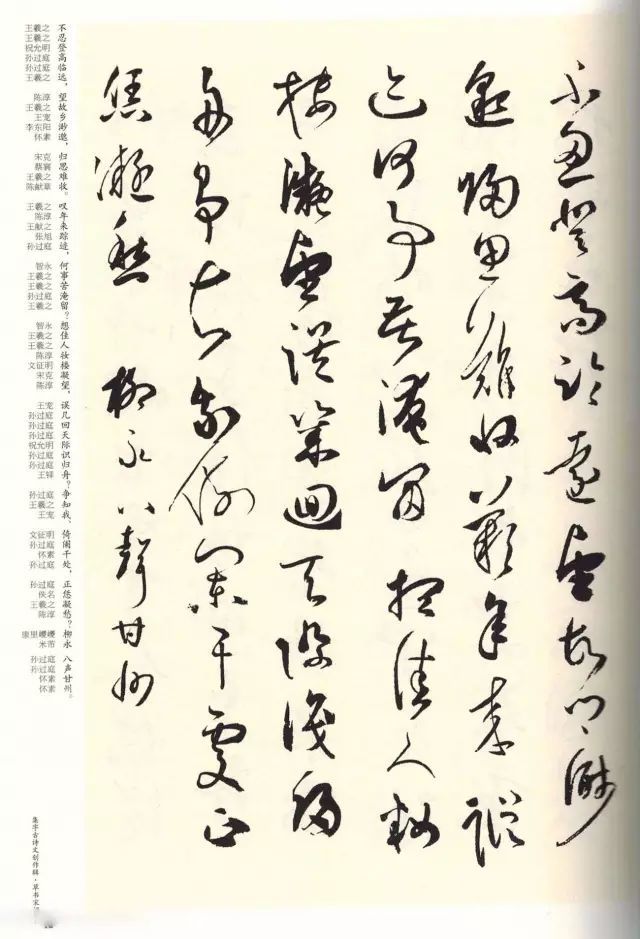 不忍登高臨遠望故鄉渺
邈歸思難收歎年來蹤
迹何事苦淹留想佳人妝
樓凝望誤幾回天際識歸
舟爭知我倚闌干處正
恁凝愁 柳永 八聲甘州
不忍登高临远，望故乡渺邈，归思难收。叹年来踪迹，何事苦淹留？想佳人妆楼凝望，误几回天际识归舟？争知我，倚阑干处，正恁凝愁？柳永 八声甘州。
王羲之
王羲之
祝允明
孙过庭
孙过庭
王羲之
陈淳
王羲之
王宠
李东阳
怀素
宋克
蔡襄
王羲之
陈献章
王羲之
陈淳
王献之
张旭
孙过庭
智永
王羲之
王羲之
孙过庭
王羲之
智永
王羲之
王羲之
陈淳
文征明
宋克
陈淳
王宠
孙过庭
孙过庭
孙过庭
祝允明
孙过庭
孙过庭
王铎
孙过庭
王羲之
王宠
文征明
孙过庭
怀素
孙过庭
孙过庭
佚名
王羲之
陈淳
康里巎巎
米芾
孙过庭
孙过庭
怀素
怀素
集字古诗文创作辑·草书宋